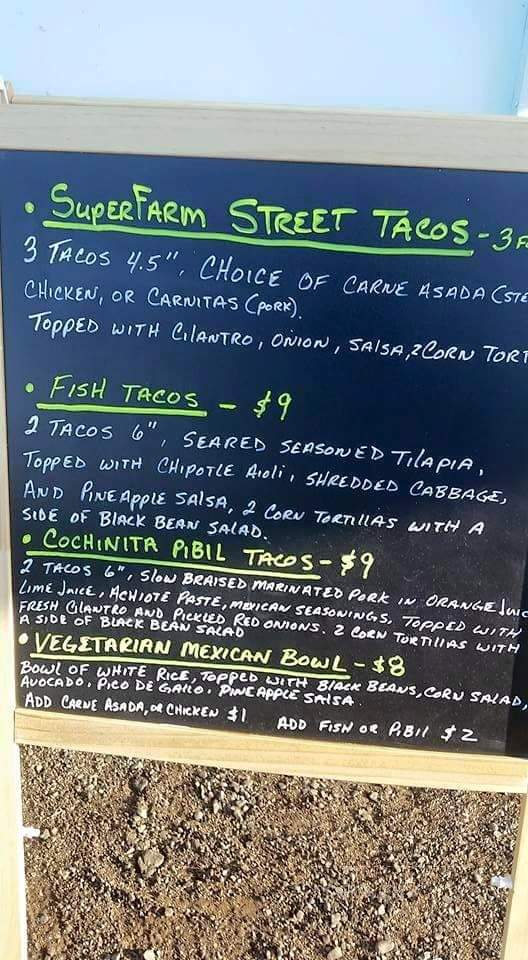 • SUPERFARM STREET TACOS - 3 F
3 TACOS 4.5", CHOICE OF CARNE ASADA (STE
CHICKEN, OR CARNITAS (PORK).
TOPPED WITH CILANTRO, ONION, SALSA, 2 CORN TORT
• FISH TACOS - $9
2 TACOS 6", SEARED SEASONED TILAPIA,
TOPPED WITH CHIPOTLE AIOLI, SHREDDED CABBAGE,
AND PINEAPPLE SALSA, 2 CORN TORTILLAS WITH A
SIDE OF BLACK BEAN SALAD.
• COCHINITA PIBIL TACOS - $9
2 TACOS 6", SLOW BRAISED MARINATED PORK IN ORANGE JUIC
LIME JUICE, ACHIOTE PASTE, MEXICAN SEASONINGS, TOPPED WITH
FRESH CILANTRO AND PICKLED RED ONIONS. 2 CORN TORTILLAS WITH
A SIDE OF BLACK BEAN SALAD
• VEGETARIAN MEXICAN BOWL - $8
BOWL OF WHITE RICE, TOPPED WITH BLACK BEANS, CORN SALAD,
AVOCADO, PICO DE GALLO, PINEAPPLE SALSA
ADD CARNE ASADA, OR CHICKEN $1 ADD FISH OR PIBIL $2